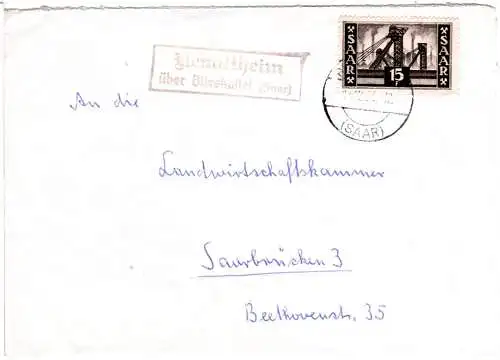 SAAR
SAAR
15
F
über (Saar)
(SAAR)
An die
Landwirtschaftskammer
Saarbrücken 3
Beethovenstr. 35